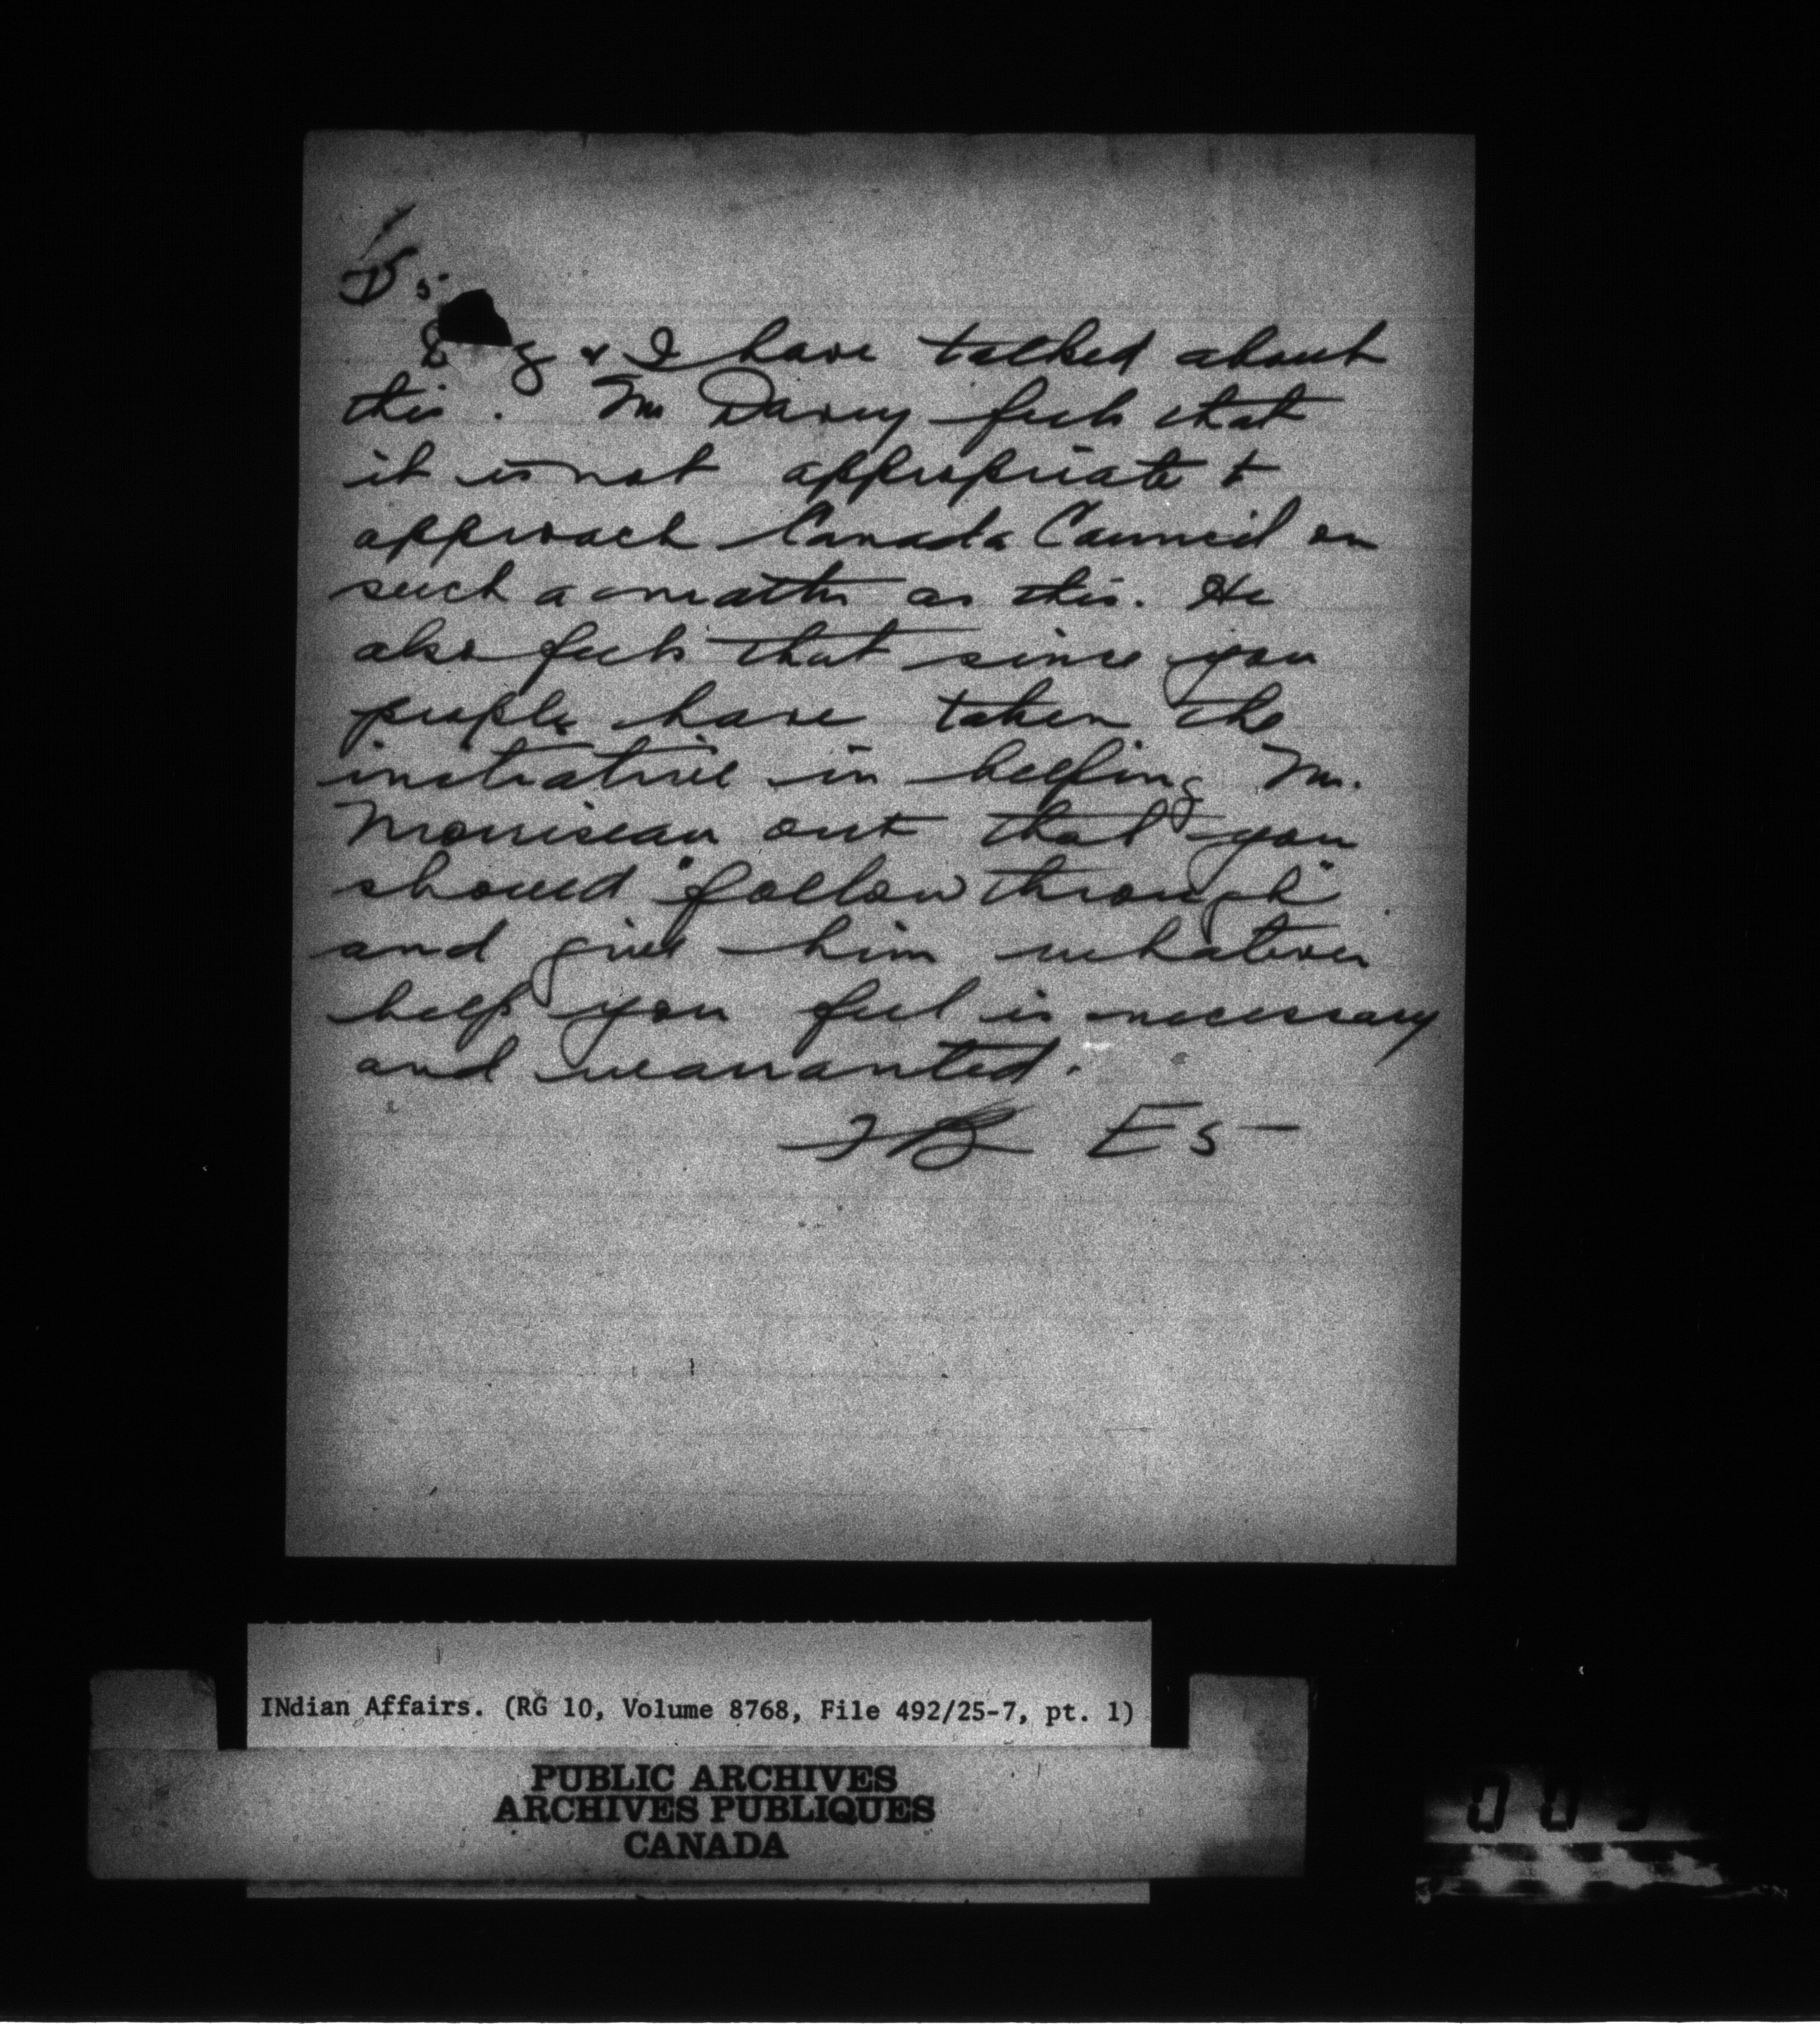 & I have talked about
this. Mr Davey feels that
it is not appropriate to
approach Canada Council on
such a matter as this. He
also feels that since you
people have taken the
initiative in helping Mr.
Morriseau out that you
should "follow through"
and give him whatever
help you feel is necessary
and warranted.
INdian Affairs. (RG 10, Volume 8768, File 492/25-7, pt. 1)
PUBLIC ARCHIVES
ARCHIVES PUBLIQUES
CANADA